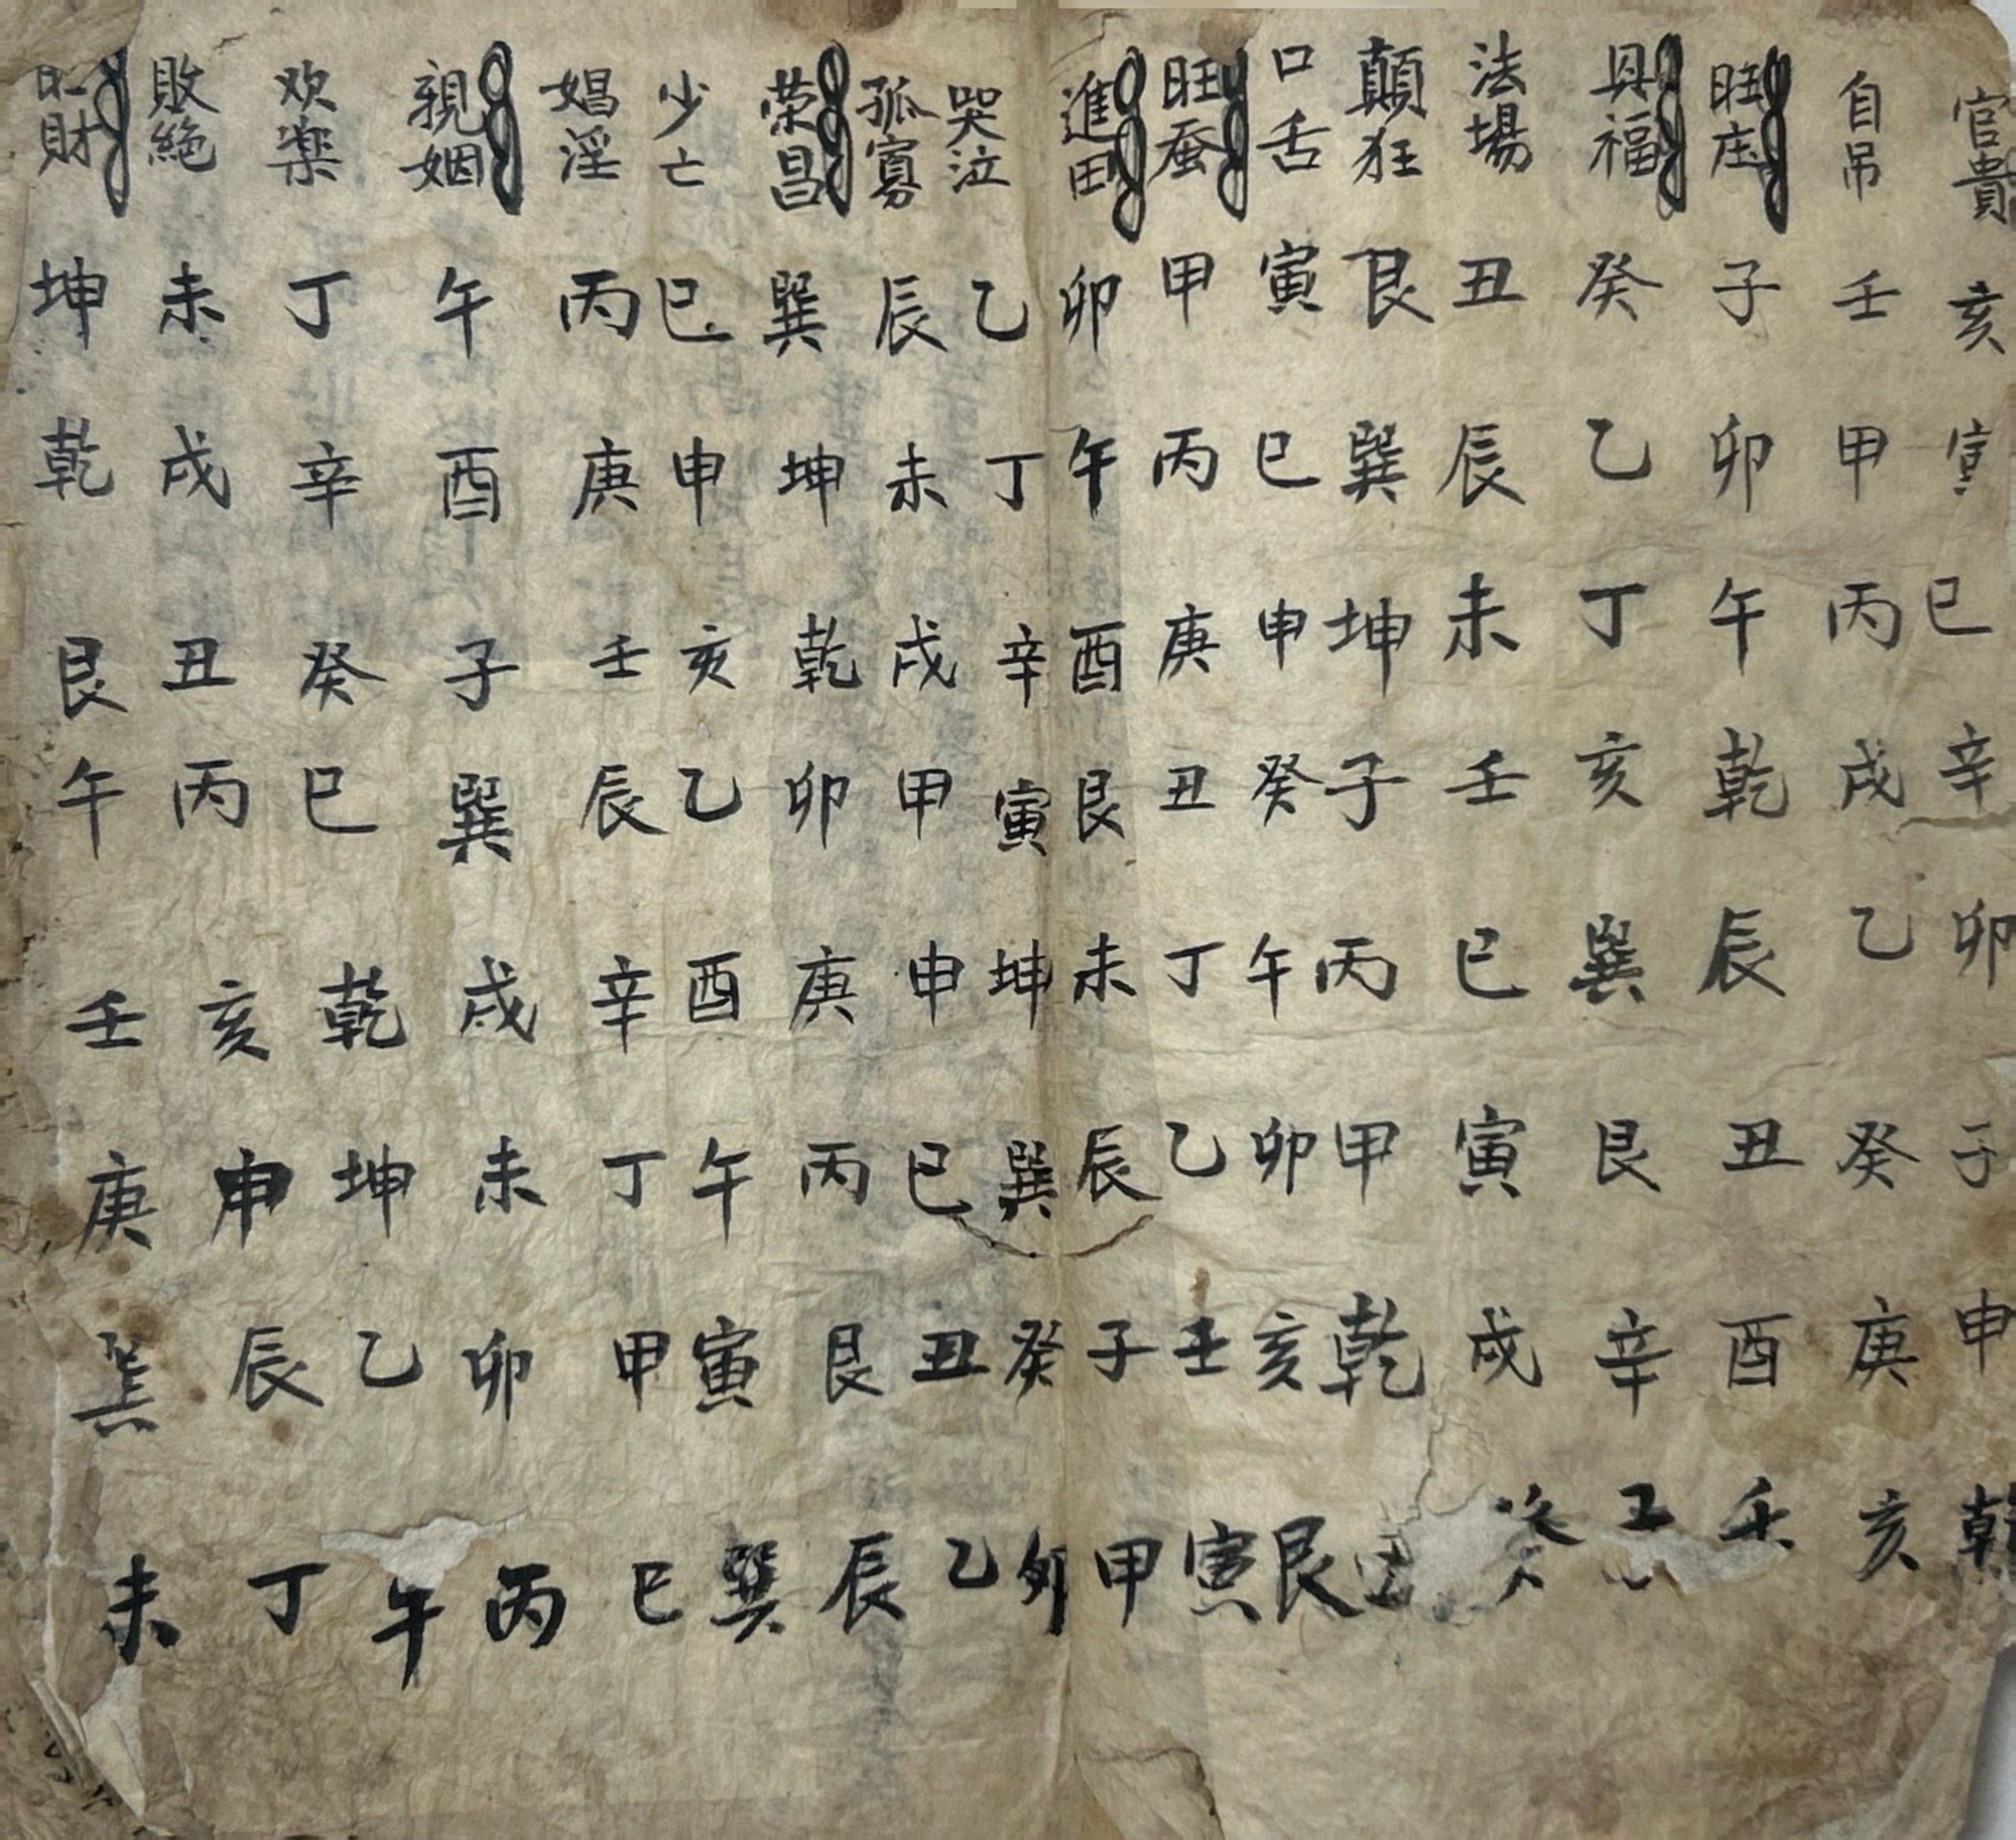 官貴 亥 寅 巳 辛 卯 子 申 乾
自吊 壬 甲 丙 戌 乙 癸 庚 亥
旺庄 子 卯 午 乾 辰 丑 酉 壬
福 癸 乙 丁 亥 巽 艮 辛
法場 丑 辰 未 壬 巳 寅 戌 癸
顛狂 艮 巽 坤 子 丙 甲 乾
口舌 寅 巳 申 癸 午 卯 亥 艮
旺蚕 甲 丙 庚 丑 丁 乙 壬 寅
進田 卯 午 酉 艮 未 辰 子 甲
哭泣 乙 丁 辛 寅 坤 巽 癸 卯
孤寡 辰 未 戌 甲 申 巳 丑 乙
荣昌 巽 坤 乾 卯 庚 丙 艮 辰
少亡 巳 申 亥 乙 酉 午 寅 巽
娼淫 丙 庚 壬 辰 辛 丁 甲 巳
親姻 午 酉 子 巽 戌 未 卯 丙
欢楽 丁 辛 癸 巳 乾 坤 乙 午
敗絶 未 戌 丑 丙 亥 申 辰 丁
旺財 坤 乾 艮 午 壬 庚 巽 未